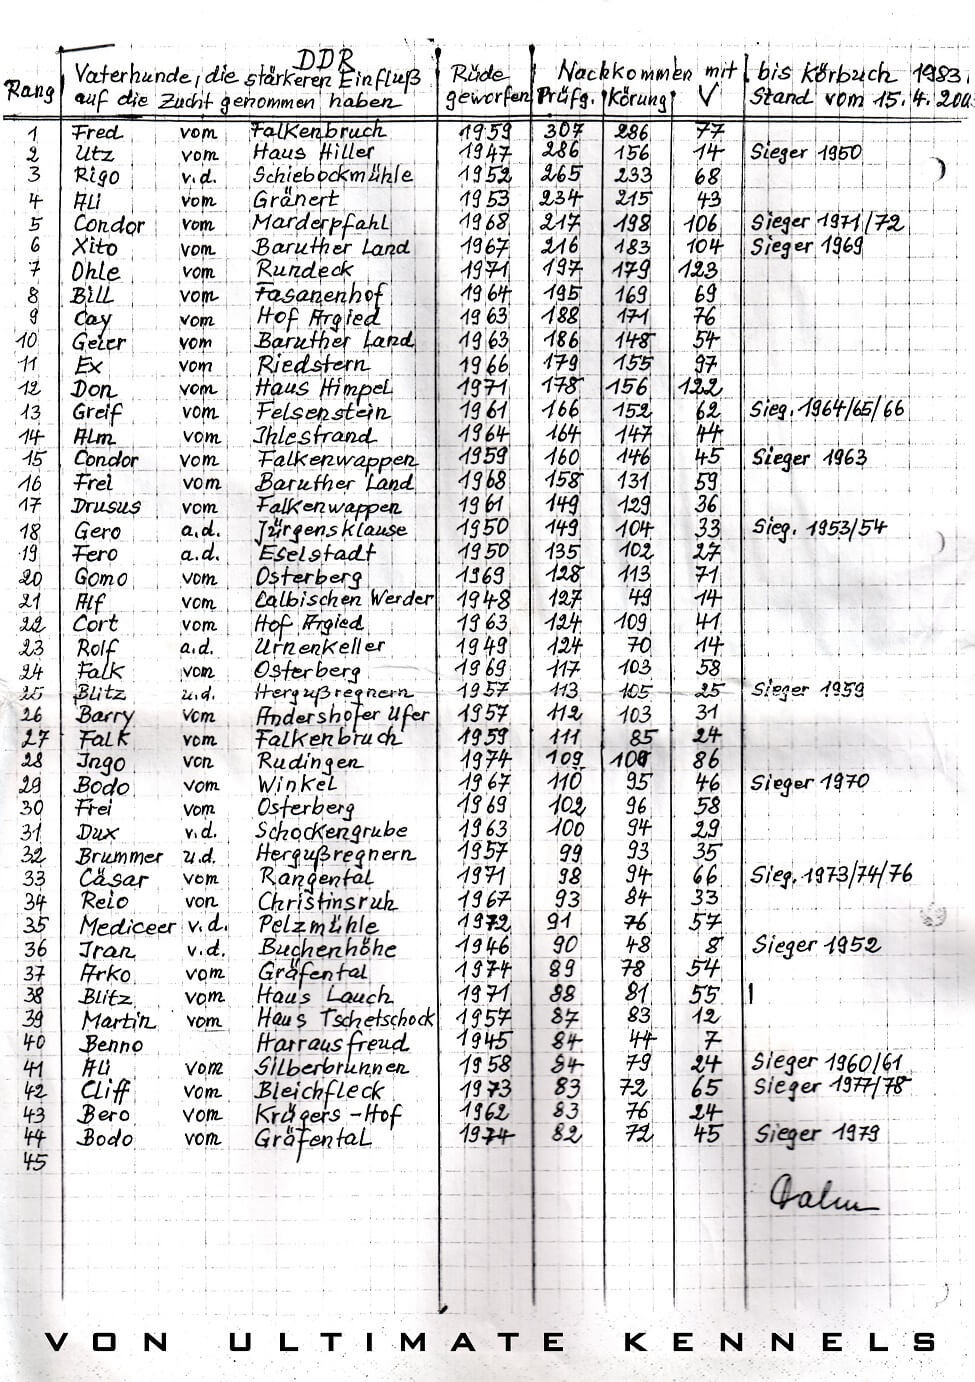 DDR
Rang Vaterhunde, die stärkeren Einfluß Rüde Nachkommen mit bis Körbuch 1983.
auf die Zucht genommen haben geworfen Prüfg. Körung V Stand vom 15.4.200
1 Fred vom Falkenbruch 1959 307 286 77
2 Utz vom Haus Hiller 1947 286 156 14 Sieger 1950
3 Rigo v.d. Schiebockmühle 1952 265 233 68
4 Ali vom Gränert 1953 234 215 43
5 Condor vom Marderpfahl 1968 217 198 106 Sieger 1971/72
6 Xito vom Baruther Land 1967 216 183 104 Sieger 1969
7 Ohle vom Rundeck 1971 197 179 123
8 Bill vom Fasanenhof 1964 195 169 69
9 Cay vom Hof Argied 1963 188 171 76
10 Geier vom Baruther Land 1963 186 148 54
11 Ex vom Riedstern 1966 179 155 97
12 Don vom Haus Himpel 1971 178 156 122
13 Greif vom Felsenstein 1961 166 152 62 Sieg. 1964/65/66
14 Alm vom Ihlestrand 1964 164 147 44
15 Condor vom Falkenwappen 1959 160 146 45 Sieger 1963
16 Frei vom Baruther Land 1968 158 131 59
17 Drusus vom Falkenwappen 1961 149 129 36
18 Gero a.d. Jürgensklause 1950 149 104 33 Sieg. 1953/54
19 Fero a.d. Eselstadt 1950 135 102 27
20 Gomo vom Osterberg 1969 128 113 71
21 Alf vom Calbischen Werder 1948 127 49 14
22 Cort vom Hof Argied 1963 124 109 41
23 Rolf a.d. Urnenkeller 1949 124 70 14
24 Falk vom Osterberg 1969 117 103 58
25 Blitz u.d. Hergußregnern 1957 113 105 25 Sieger 1959
26 Barry vom Andershofer Ufer 1957 112 103 31
27 Falk vom Falkenbruch 1959 111 85 24
28 Ingo von Rudingen 1974 109 100 86
29 Bodo vom Winkel 1967 110 95 46 Sieger 1970
30 Frei vom Osterberg 1969 102 96 58
31 Dux v.d. Schockengrube 1963 100 94 29
32 Brummer u.d. Hergußregnern 1957 99 93 35
33 Cäsar vom Rangental 1971 98 94 66 Sieg. 1973/74/76
34 Reio von Christinsruh 1967 93 84 33
35 Mediceer v.d. Pelzmühle 1972 91 76 57
36 Iran v.d. Buchenhöhe 1946 90 48 8 Sieger 1952
37 Arko vom Gräfental 1974 89 78 54
38 Blitz vom Haus Lauch 1971 88 81 55
39 Martin vom Haus Tschetschock 1957 87 83 12
40 Benno Harrausfreud 1945 84 44 7
41 Ali vom Silberbrunnen 1958 84 79 24 Sieger 1960/61
42 Cliff vom Bleichfleck 1973 83 72 65 Sieger 1977/78
43 Bero vom Krügers-Hof 1962 83 76 24
44 Bodo vom Gräfental 1974 82 72 45 Sieger 1979
45
VON ULTIMATE KENNELS